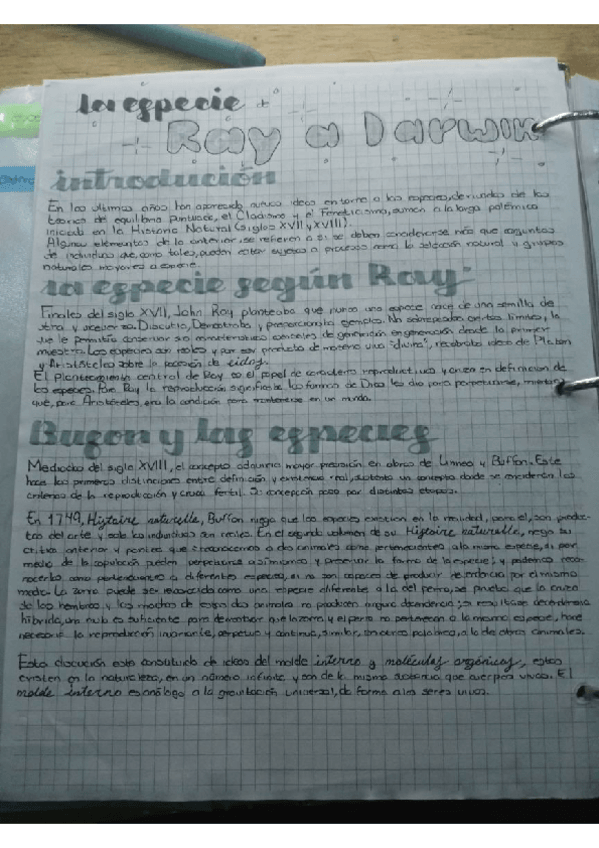 La especie de
Ray a Darwin
introducción
En los ultimos años han aparecido nuevas ideas en torno a las especies, derivadas de las
teorías del equilibrio puntuado, el Cladismo y el Feneticismo, aunan a la larga polémica
iniciada en la Historia Natural (siglos XVII y XVIII).
Algunos elementos de lo anterior se refieren a si se deben considerarse más que conjuntos
de individuos que, como tales, puedan estar sujetos a procesos como la selección natural y grupos
naturales mayores a especie.
La especie según Ray
Finales del siglo XVII, John Ray planteaba que nunca una especie nace de una semilla de
otra y viceversa. Discutió, Demostraba y proporcionaba ejemplos. No sobrepasaba ciertos límites, lo
que le permitía conservar sus características esenciales de generación en generación desde la primer
muestra. Las especies son reales y por ser producto de "divina", recobraba ideas de Platón
y Aristóteles sobre la noción de eidos.
El planteamiento central de Ray es el papel de caracteres reproductivos y crianza en definición de
las especies. Para Ray la reproducción significaba las formas de Dios les dio para perpetuarse, mientras
que, para Aristóteles, era la condición para mantenerse en un mundo.
Bufon y las especies
Mediados del siglo XVIII, el concepto adquiría mayor precisión en obras de Linneo y Buffon. Este
hace las primeras distinciones entre definición y existencia real, adopta un concepto donde se consideran los
criterios de la reproducción y cruza fértil. Su concepción paso por distintas etapas.
En 1749, Histoire naturelle, Buffon niega que las especies existían en la realidad, para el, son produc-
tos del arte y solo los individuos son reales. En el segundo volumen de su Histoire naturelle, niega su
critica anterior y plantea que si reconocemos a dos animales como pertenecientes a la misma especie, si por
medio de la copulación pueden perpetuarse a si mismos y preservar la forma de la especie; y podemos reco-
nocerlos como pertenecientes a diferentes especies, si no son capaces de producir descendencia por el mismo
medio. La zorra puede ser reconocida como una especie diferentes a la del perro, se prueba que la cruza
de las hembras y los machos de estos dos animales no producen ninguna descendencia; si resultase descendencia
hibrida, un mulo es suficiente para demostrar que la zorra y el perro no pertenecen a la misma especie, hace
necesario la reproducción invariante, perpetua y continua, similar, en otras palabras, a la de otros animales.
Esta discusión esta constituida de ideas del molde interno y moléculas orgánicas, estas
existen en la naturaleza, en un número infinito y son de la misma sustancia que cuerpos vivos. El
molde interno es análogo a la gravitación universal, da forma a los seres vivos.